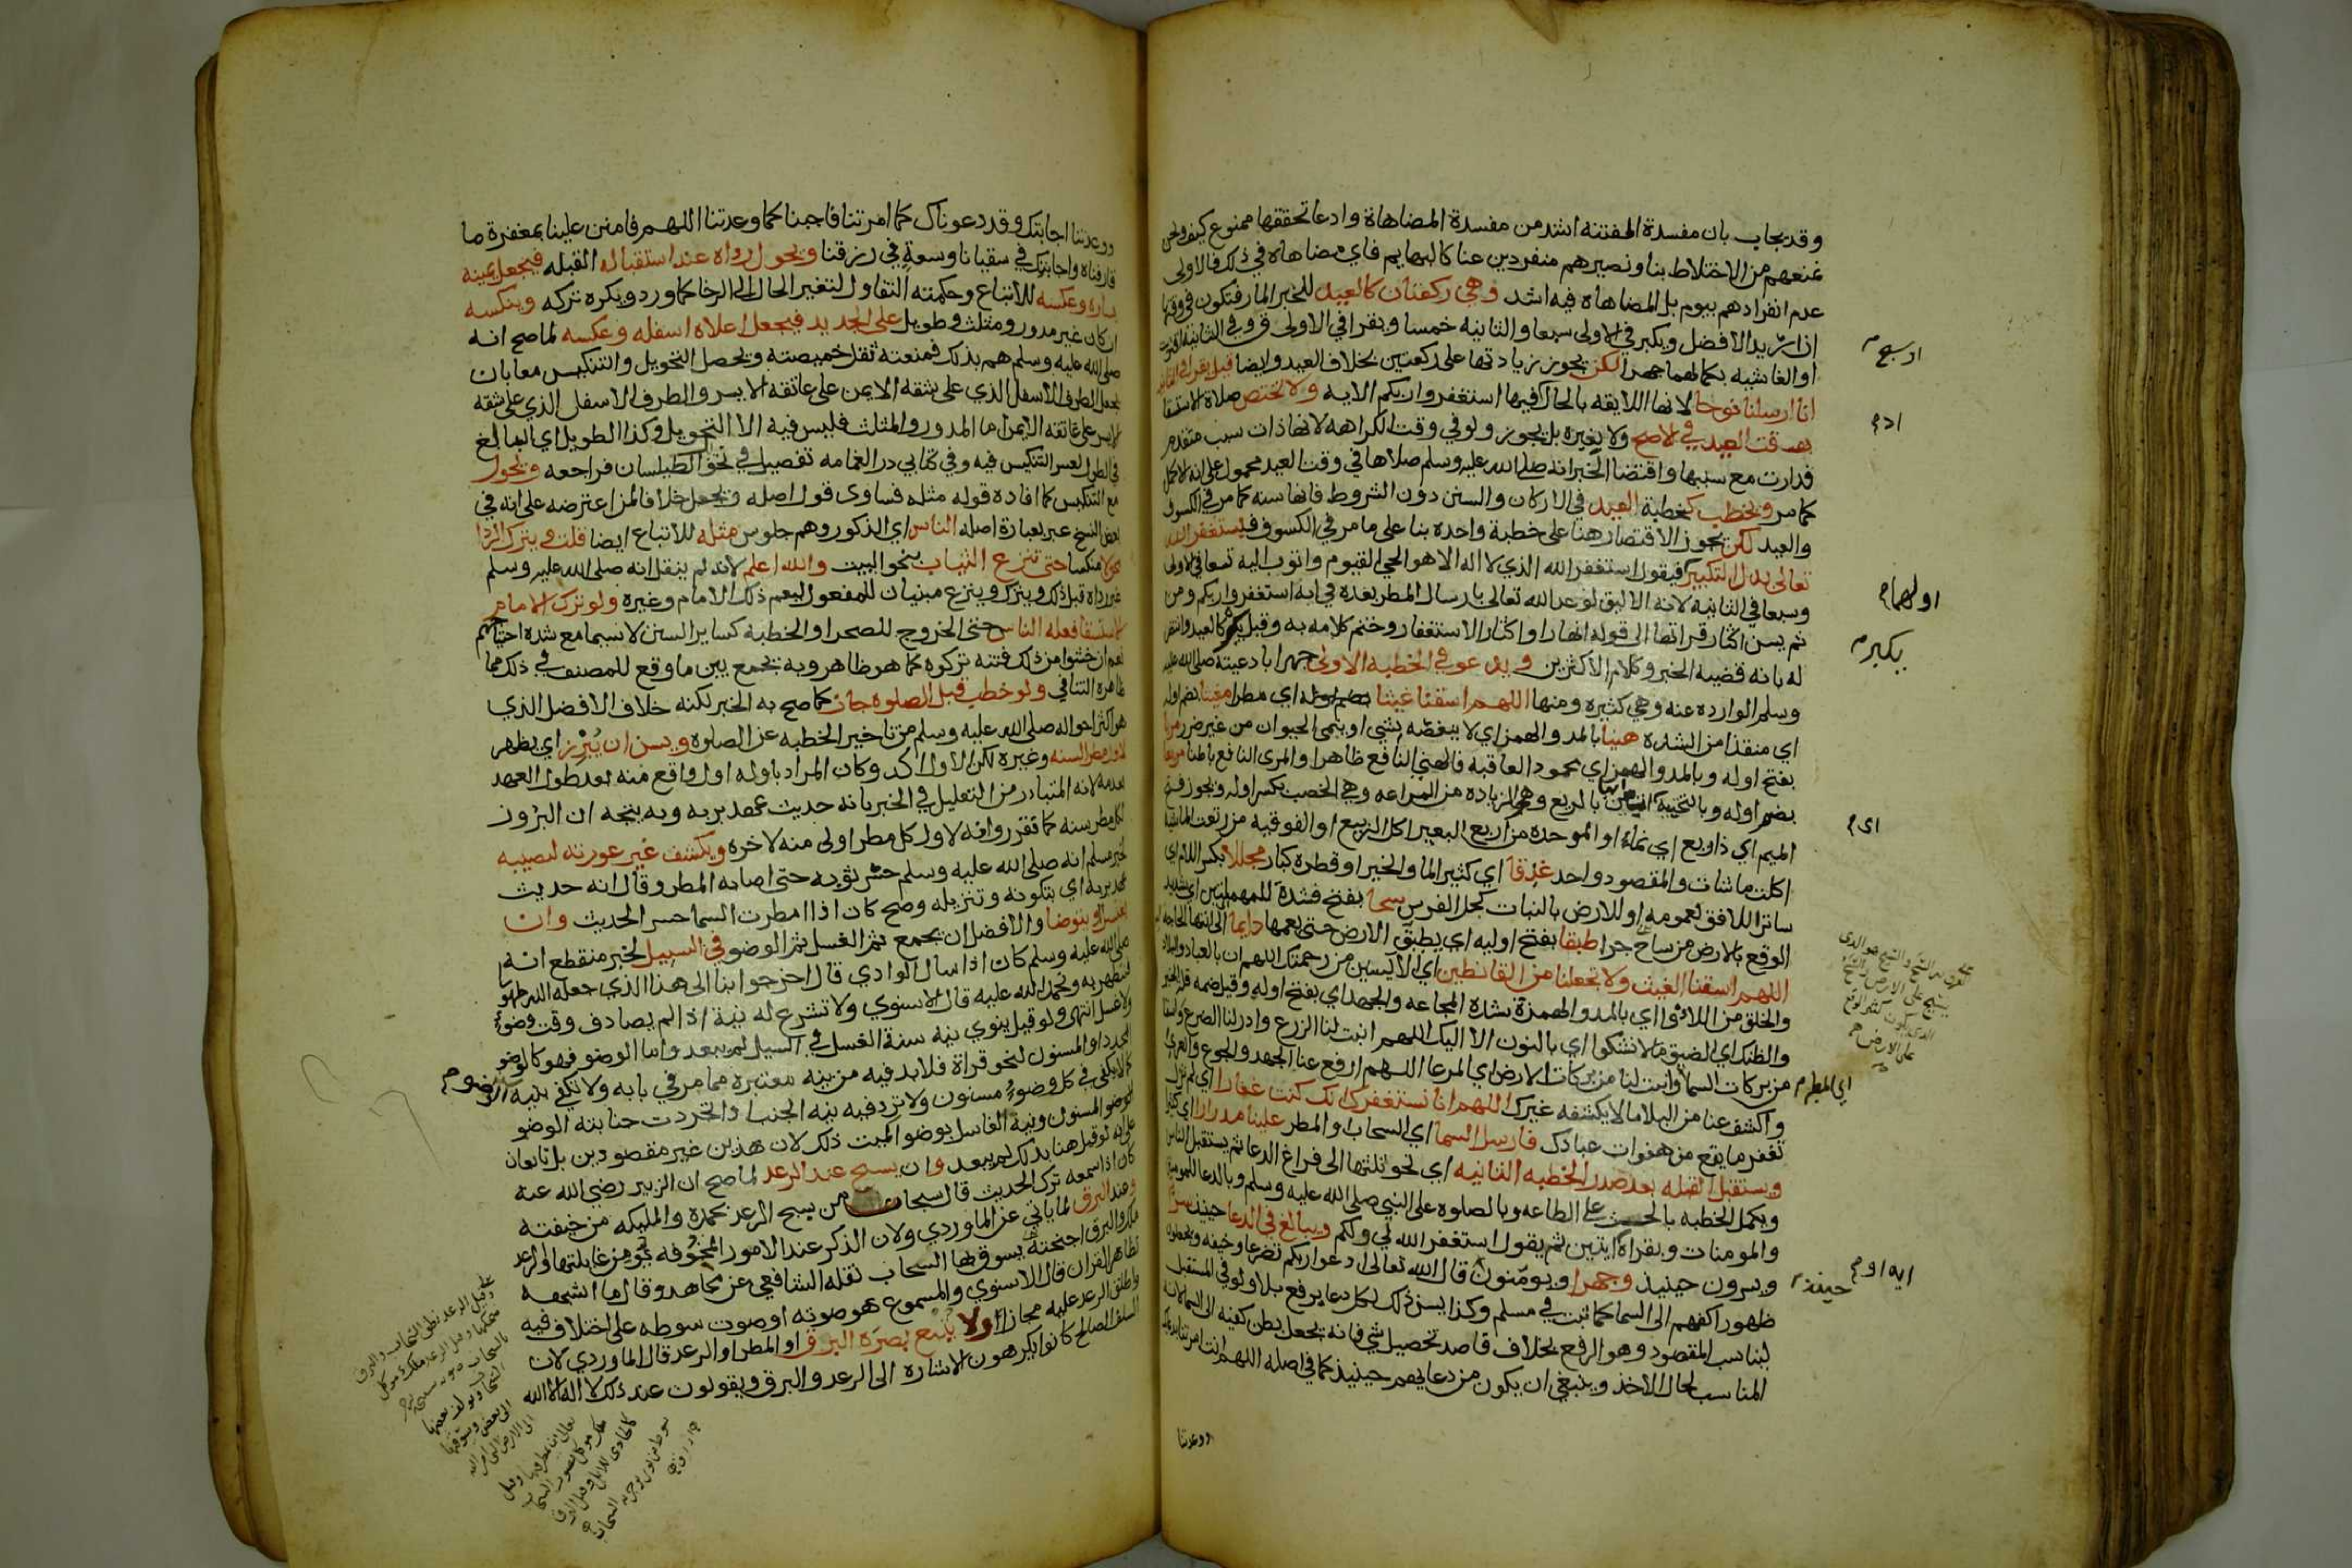 وقد يجاب بان مفسدة الفتنه اشد من مفسدة المضاهاة وادعا تحققها ممنوع كيف ونحن
نمنعهم من الاختلاط بنا ونصيرهم منفردين عنا كالبهايم فاي مضاهاه في ذلك فالاولى
عدم انفرادهم بيوم بل المضاهاه فيه اشد وهي ركعتان كالعيد للخبر المار فتكون في وقتها
الافضل ويكبر في الاولى سبعا والثانيه خمسا ويقرا في الاولى ق وفي الثانيه
او الغاشيه بكمالهما جهرا لكن يجوز زيادتها على ركعتين بخلاف العيد وايضا قيل يقرا في الثانيه
انا ارسلنا نوحا لانها اللايقه بالحال اذ فيها استغفروا ربكم الايه ولا تختص صلاة الاستسقا
بوقت العيد في الاصح ولا بغيره بل يجوز ولو في وقت الكراهه لانها ذات سبب متقدم
فدارت مع سببها واقتضا الخبر انه صلى الله عليه وسلم صلاها في وقت العيد محمول على انه الاكمل
كما مر ويخطب كخطبة العيد في الاركان والسنن دون الشروط فانها سنه كما مر في الكسوف
والعيد لكن يجوز الاقتصار هنا على خطبة واحده بنا على ما مر في الكسوف فيستغفر الله
تعالى بدل التكبير فيقول استغفر الله الذي لا اله الا هو الحي القيوم واتوب اليه تسعا في الاولى
وسبعا في الثانيه لانه الاليق لوعد الله تعالى بارسال المطر بعده في ايه استغفروا ربكم ومن
ثم يسن اكثار قراتها الى قوله انهارا واكثار الاستغفار وختم كلامه به وقيل يكبر كالعيد وانتصر
له بانه قضيه الخبر وكلام الاكثرين ويدعو في الخطبه الاولى جهرا بادعيته صلى الله عليه
وسلم الوارده عنه وهي كثيره ومنها اللهم اسقنا غيثا اي مطرا مغيثا بضم اوله
اي منقذا من الشده هنيئا بالمد والهمز اي لا ينغصه شي او ينمي الحيوان من غير ضرر مريا
بفتح اوله وبالمد والهمز اي محمود العاقبه فالهني النافع ظاهرا والمرى النافع باطنا مريعا
بضم اوله وبالتحتيه بالريع وهو الزياده من المراعه وهي الخصب بكسر اوله ويجوز فتح
الميم اي ذا ريع اي نماء او الموحده من اربع البعير اكل الربيع او الفوقيه من رتعت الماشيه
اكلت ما شات والمقصود واحد غدقا اي كثير الما والخير او قطره كبار مجللا بكسر اللام اي
ساترا للافق لعمومه او للارض بالنبات كجل الفرس سحا بفتح فشدة للمهملتين اي شديد
الوقع بالارض من ساح جرا طبقا بفتح اوليه اي يطبق الارض حتى يعمها دايما الى انتها الحاجه
اللهم اسقنا الغيث ولا تجعلنا من القانطين اي الايسين من رحمتك اللهم ان بالعباد والبلاد
والخلق من اللاوى اي بالمد والهمزة شدة المجاعه والجهد اي بفتح اوله وقيل ضمه قلة الخير
والظنك اي الضيق ما لا نشكوا اي بالنون الا اليك اللهم انبت لنا الزرع وادر لنا الضرع واسقنا
من بركات السما وانبت لنا من بركات الارض اي المرعا اللهم ارفع عنا الجهد والجوع والعرى
واكشف عنا من البلا ما لا يكشفه غيرك اللهم انا نستغفرك انك كنت غفارا اي لم تزل
تغفر ما يقع من هفوات عبادك فارسل السما اي السحاب او المطر علينا مدرارا اي كثيرا
ويستقبل القبله بعد صدر الخطبه الثانيه اي نحو ثلثها الى فراغ الدعا ثم يستقبل الناس
ويكمل الخطبه بالحث على الطاعه وبالصلوه على النبي صلى الله عليه وسلم وبالدعا للمومنين
والمومنات وبقراة ايتين ثم يقول استغفر الله لي ولكم ويبالغ في الدعا حينيذ سرا
ويسرون حينيذ وجهرا ويومنون قال الله تعالى ادعوا ربكم تضرعا وخيفه ويجعلون
ظهور اكفهم الى السما كما ثبت في مسلم وكذا يسن ذلك لكل دعا يرفع بلا ولو في المستقبل
ليناسب المقصود وهو الرفع بخلاف قاصد تحصيل شي فانه يجعل بطن كفيه الى السما لانه
المناسب لحال الاخذ وينبغي ان يكون من دعايهم حينيذ كما في اصله اللهم انت امرتنا بدعائك
ووعدتنا
اولهما م
يكبر م
اي م
اي المطر م
ايه او م
حينيذ م
ووعدتنا اجابتك وقد دعوناك كما امرتنا فاجبنا كما وعدتنا اللهم فامنن علينا بمغفرة ما
قارفناه واجابتك في سقيانا وسعة في رزقنا ويحول رداه عند استقباله القبله فيجعل يمينه
يساره وعكسه للاتباع وحكمته التفاول لتغير الحال الى الرخا كما ورد ويكره تركه وينكسه
ان كان غير مدور ومثلث وطويل على الجديد فيجعل اعلاه اسفله وعكسه لما صح انه
صلى الله عليه وسلم هم بذلك فمنعته ثقل خميصته ويحصل التحويل والتنكيس معا بان
يجعل الطرف الاسفل الذي على شقه الايمن على عاتقه الايسر والطرف الاسفل الذي على شقه
الايسر على عاتقه الايمن اما المدور والمثلث فليس فيه الا التحويل وكذا الطويل اي البالغ
في الطول لعسر التنكيس فيه وفي كتابي در الغمامه تفصيل في نحو الطيلسان فراجعه ويحول
مع التنكيس كما افاده قوله مثله فساوى قول اصله ويجعل خلافا لمن اعترضه على انه في
بعض النسخ عبر بعبارة اصله الناس اي الذكور وهم جلوس مثله للاتباع ايضا قلت ويترك الردا
محولا منكسا حتى تنزع الثياب بنحو البيت والله اعلم لانه لم ينقل انه صلى الله عليه وسلم
غير رداه قبل ذلك ويترك وينزع مبنيان للمفعول ليعم ذلك الامام وغيره ولو ترك الامام
الاستسقا فعله الناس حتى الخروج للصحرا والخطبه كساير السنن لا سيما مع شده احتياجهم
نعم ان خشوا من ذلك فتنه تركوه كما هو ظاهر وبه يجمع بين ما وقع للمصنف في ذلك مما
ظاهره التنافي ولو خطب قبل الصلوه جاز كما صح به الخبر لكنه خلاف الافضل الذي
هو اكثر احواله صلى الله عليه وسلم من تاخير الخطبه عن الصلوه ويسن ان يبرز اي يظهر
لاول مطر السنه وغيره لكن الاول اكد وكان المراد باوله اول واقع منه بعد طول العهد
بعدمه لانه المتبادر من التعليل في الخبر بانه حديث عهد بربه وبه يتجه ان البروز
لكل مطر سنه كما تقرر وانه لاول كل مطر اولى منه لاخره ويكشف غير عورته ليصيبه
لخبر مسلم انه صلى الله عليه وسلم حسر ثوبه حتى اصابه المطر وقال انه حديث
عهد بربه اي بتكونه وتنزيله وصح كان اذا امطرت السما حسر الحديث وان
يغتسل او يتوضا والافضل ان يجمع ثم الغسل ثم الوضو في السيل لخبر منقطع انه
صلى الله عليه وسلم كان اذا سال الوادي قال اخرجوا بنا الى هذا الذي جعله الله طهورا
فنتطهر به ونحمد الله عليه قال الاسنوي ولا تشرع له نية اذا لم يصادف وقت وضوء
ولا غسل انتهى ولو قيل ينوي نية سنة الغسل في السيل لم يبعد واما الوضو فهو كالوضو
المجدد او المسنون لنحو قراة فلا بد فيه من نيه معتبره مما مر في بابه ولا تكفي نية
كما لا يكفي في كل وضوء مسنون ولا ترد فيه نيه الجنب اذا تجردت جنابته الوضو
الوضو المسنون ونية الغاسل بوضو الميت ذلك لان هذين غير مقصودين بل تابعان
على انه لو قيل هنا بذلك لم يبعد وان يسبح عند الرعد لما صح ان الزبير رضي الله عنه
كان اذا سمعه ترك الحديث قال سبحان من يسبح الرعد بحمده والمليكه من خيفته
وعند البرق لما ياتي عن الماوردي ولان الذكر عند الامور المخوفه يومن غايلتها والرعد
ملك والبرق اجنحته يسوق بها السحاب نقله الشافعي عن مجاهد وقال ما اشبهه
بظاهر القران قال الاسنوي والمسموع هو صوته او صوت سوطه على اختلاف فيه
واطلق الرعد عليه مجازا ولا يتبع بصره البرق او المطر او الرعد قال الماوردي لان
السلف الصالح كانوا يكرهون الاشاره الى الرعد والبرق ويقولون عند ذلك لا اله الا الله